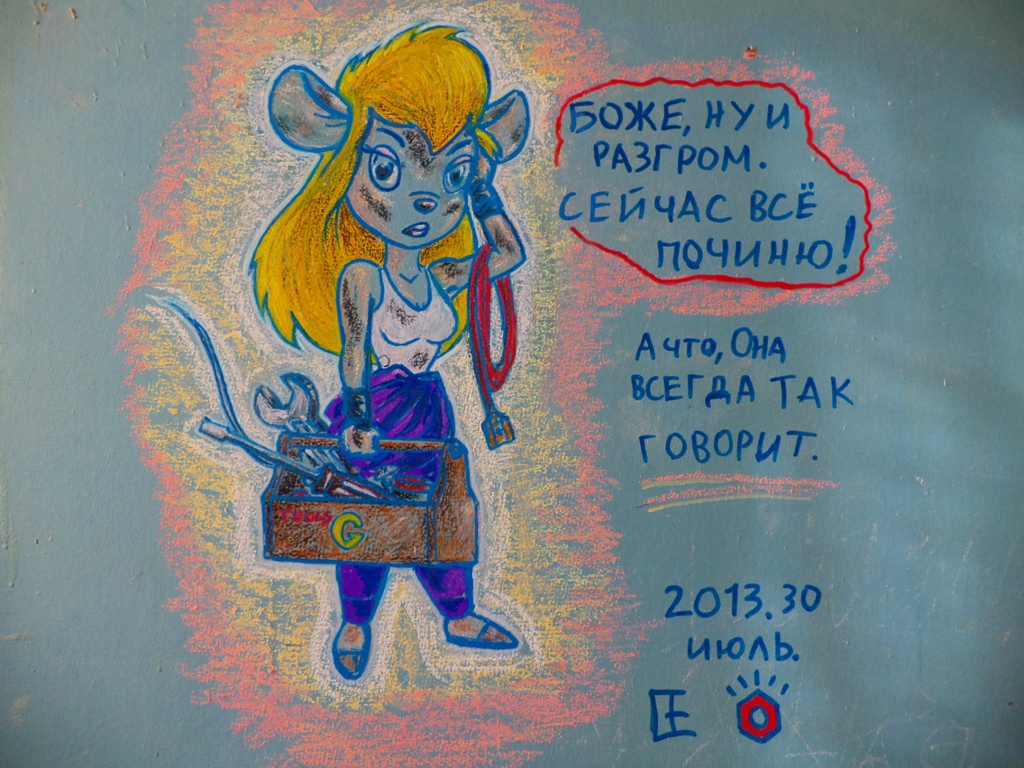 БОЖЕ, НУ И
РАЗГРОМ.
СЕЙЧАС ВСЁ
ПОЧИНЮ!
А ЧТО, ОНА
ВСЕГДА ТАК
ГОВОРИТ.
G
2013.30
ИЮЛЬ.